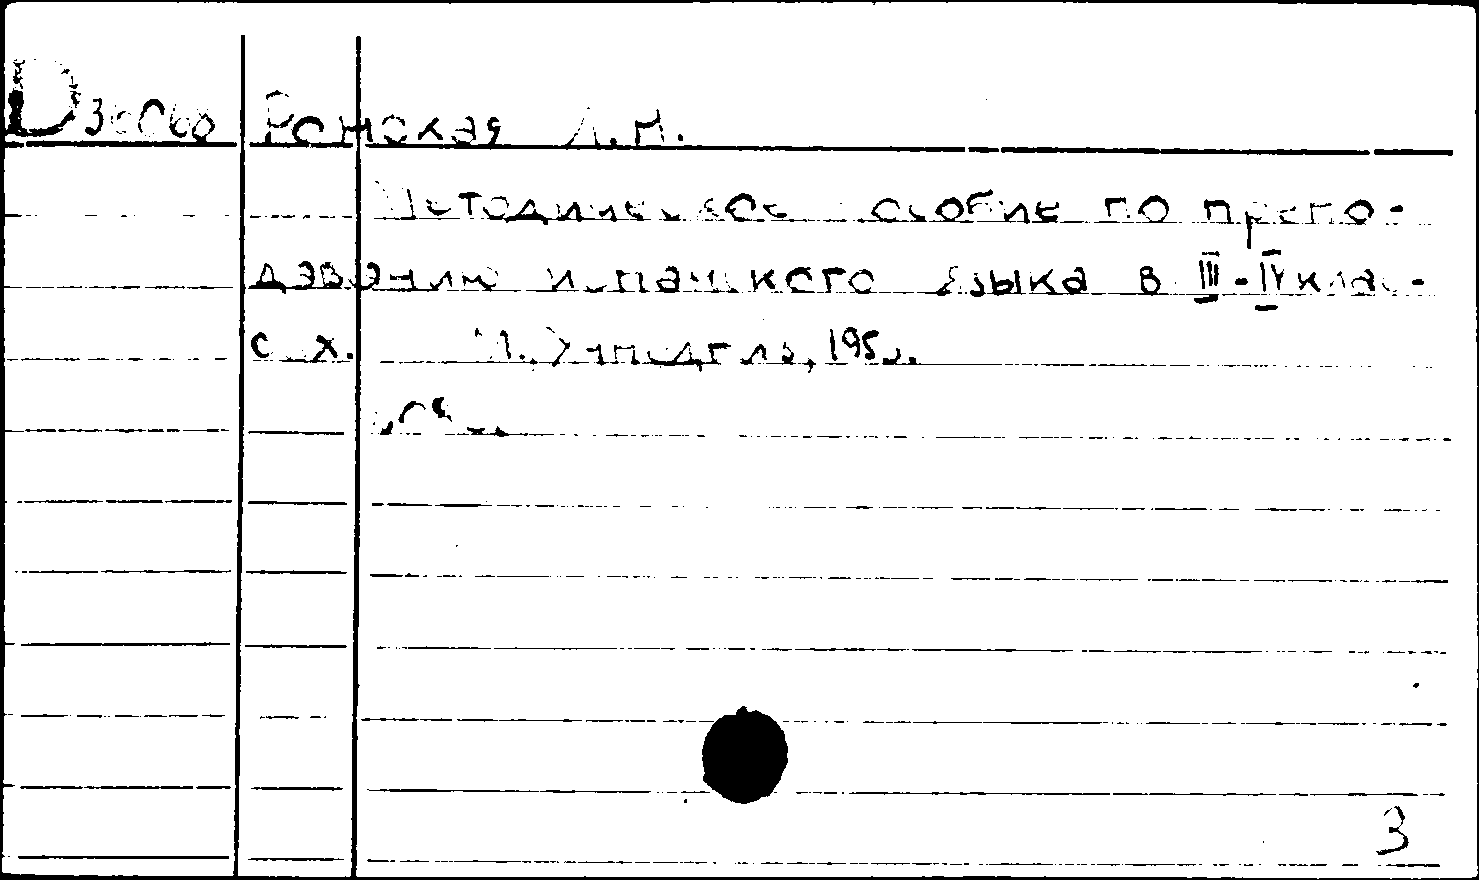 Ромская Л.Н.
Методическое пособие по препо-
даванию испанского языка в III-IV клас-
сах. М., Учпедгиз,
3